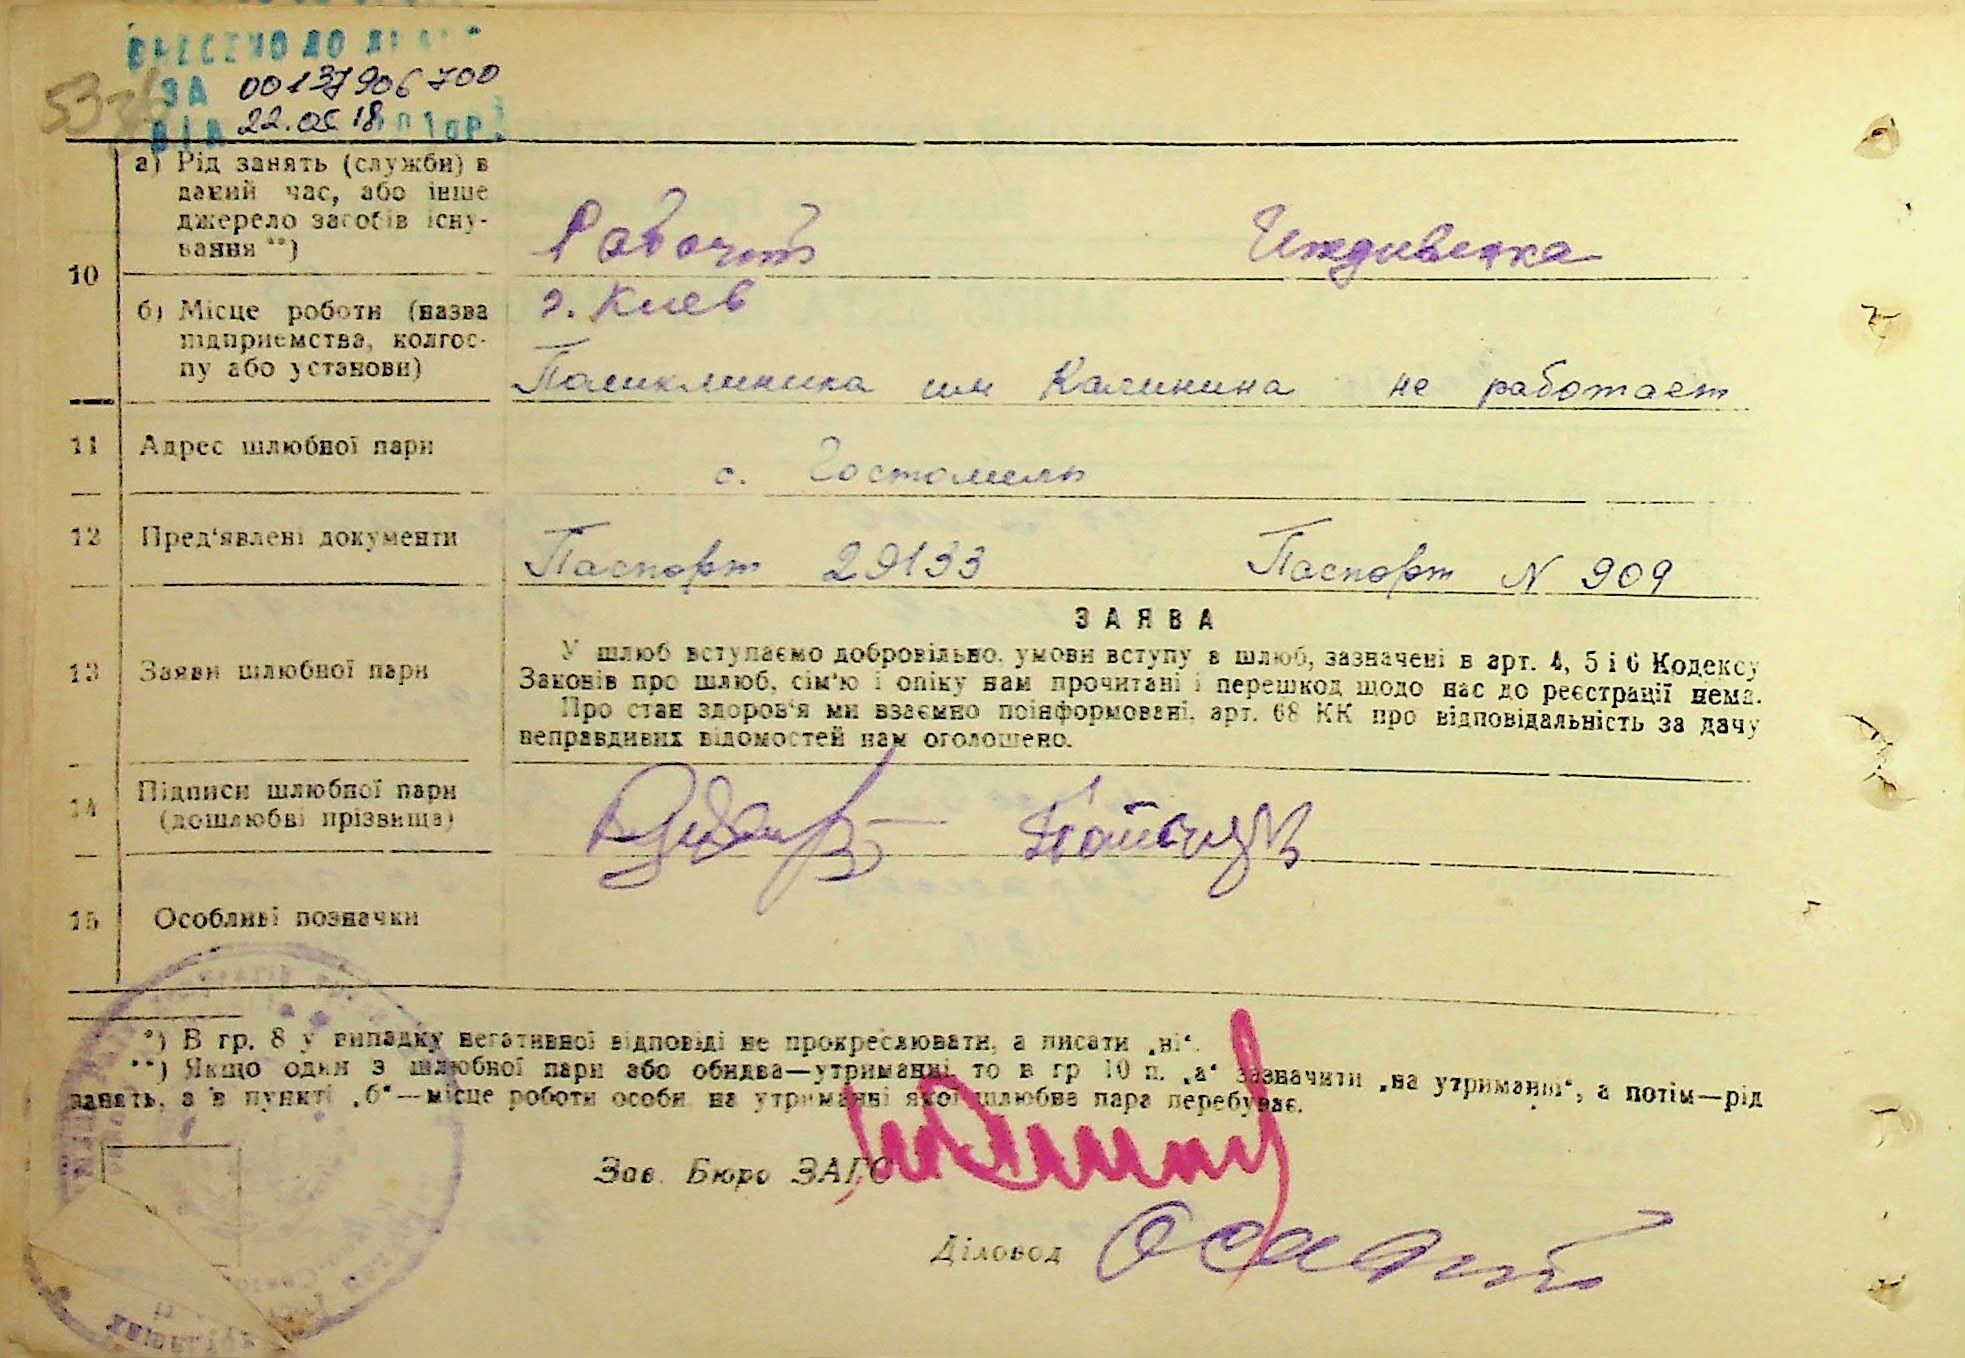 ВНЕСЕНО ДО
ЗА 00137906700
ВІД 22.05.18
10
а) Рід занять (служби) в
даний час, або інше
джерело засобів існу-
вання **)
Рабочий Иждивенка
б) Місце роботи (назва
підприємства, колгос-
пу або установи)
г. Киев
Поликлиника им Калинина не работает
11 Адрес шлюбної пари
с. Гостомель
12 Пред'явлені документи
Паспорт 29133 Паспорт N 909
13 Заяви шлюбної пари
ЗАЯВА
У шлюб вступаємо добровільно, умови вступу в шлюб, зазначені в арт. 4, 5 і 6 Кодексу
Законів про шлюб, сім'ю і опіку нам прочитані і перешкод щодо нас до реєстрації нема.
Про стан здоров'я ми взаємно поінформовані, арт. 68 КК про відповідальність за дачу
неправдивих відомостей нам оголошено.
14 Підписи шлюбної пари
(дошлюбні прізвища)
15 Особливі позначки
*) В гр. 8 у випадку негативної відповіді не прокреслювати, а писати „ні“.
**) Якщо один з шлюбної пари або обидва—утриманці то в гр 10 п. „а“ зазначити „на утриманні“, а потім—рід
занять, а в пункті „б“—місце роботи особи на утриманні якої шлюбна пара перебуває.
Зав. Бюро ЗАГС
Діловод